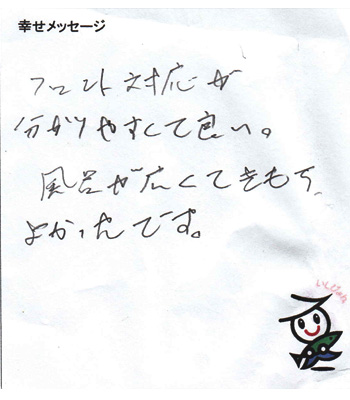 幸せメッセージ
フロント対応が
分かりやすくて良い。
風呂が広くてきもち
よかったです。